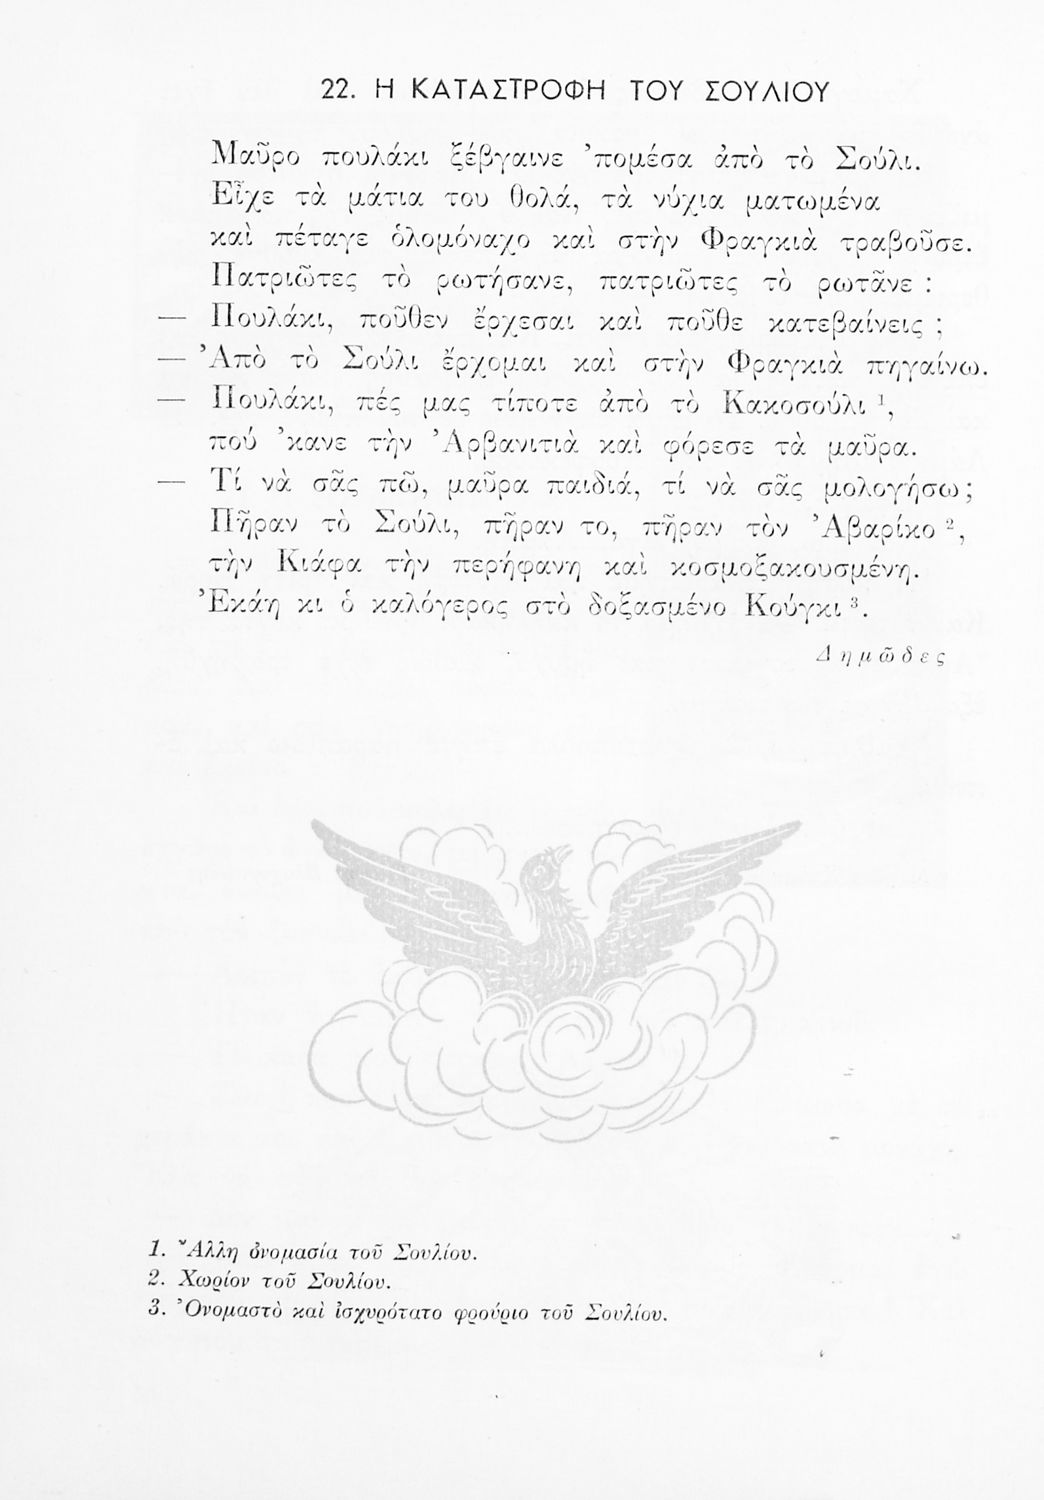 22. Η ΚΑΤΑΣΤΡΟΦΗ ΤΟΥ ΣΟΥΛΙΟΥ
Μαῦρο πουλάκι ξέβγαινε ’πομέσα ἀπὸ τὸ Σούλι.
Εἶχε τὰ μάτια του θολά, τὰ νύχια ματωμένα
καὶ πέταγε ὁλομόναχο καὶ στὴν Φραγκιὰ τραβοῦσε.
Πατριῶτες τὸ ρωτήσανε, πατριῶτες τὸ ρωτᾶνε :
— Πουλάκι, ποῦθεν ἔρχεσαι καὶ ποῦθε κατεβαίνεις ;
— Ἀπὸ τὸ Σούλι ἔρχομαι καὶ στὴν Φραγκιὰ πηγαίνω.
— Πουλάκι, πές μας τίποτε ἀπὸ τὸ Κακοσούλι ¹,
πού ’κανε τὴν Ἀρβανιτιὰ καὶ φόρεσε τὰ μαῦρα.
— Τί νὰ σᾶς πῶ, μαῦρα παιδιά, τί νὰ σᾶς μολογήσω;
Πῆραν τὸ Σούλι, πῆραν το, πῆραν τὸν Ἀβαρίκο ²,
τὴν Κιάφα τὴν περήφανη καὶ κοσμοξακουσμένη.
Ἐκάη κι ὁ καλόγερος στὸ δοξασμένο Κούγκι ³.
Δημῶδες
1. Ἄλλη ὀνομασία τοῦ Σουλίου.
2. Χωρίον τοῦ Σουλίου.
3. Ὀνομαστὸ καὶ ἰσχυρότατο φρούριο τοῦ Σουλίου.